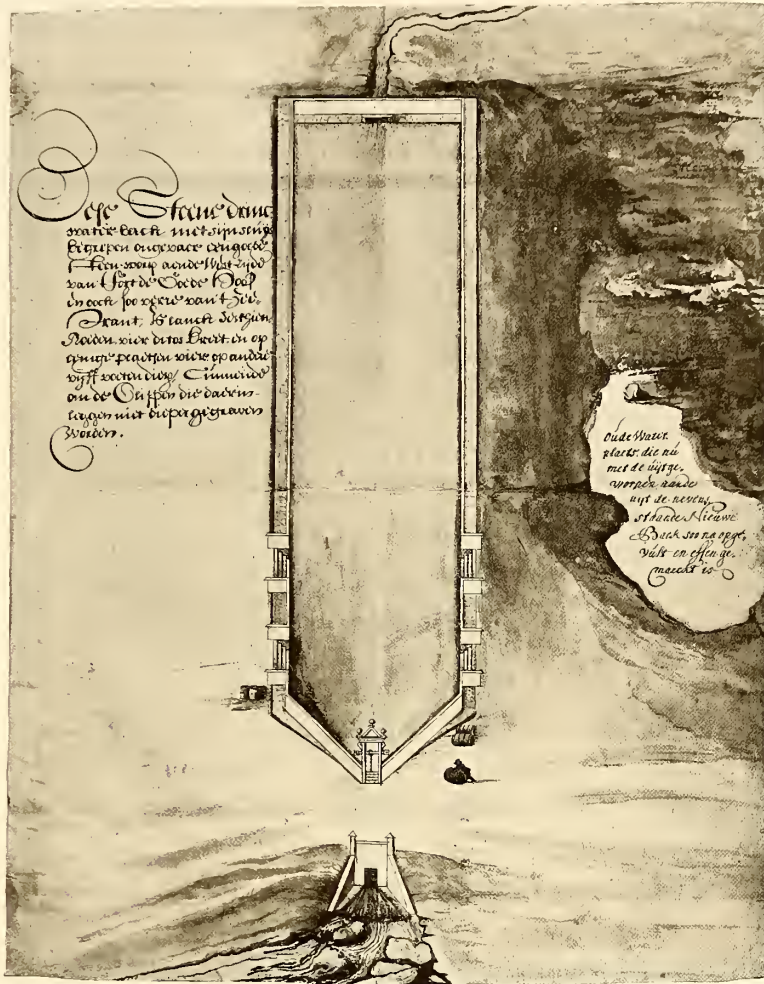 Dese Steene drinc
water back met sijn
begrepen ongevaer een goede
Steen worp aende West zijde
van t Fort de Goede Hoop
en oock soo verre van t Zee
Strant, Is lanck derthien
Roeden vier ditos breet en op
eenige plaetsen viere op andere
vijff voeten diep, Cúnnende
om de Clippen die daerin
leggen niet dieper gegraven
Worden.
Oúde Water
plaets, die nú
met de úijtge,
worpen aerde
uijt de nevens,
staande Nieúwe
Back soo na opge,
vult en effen ge,
maeckt is